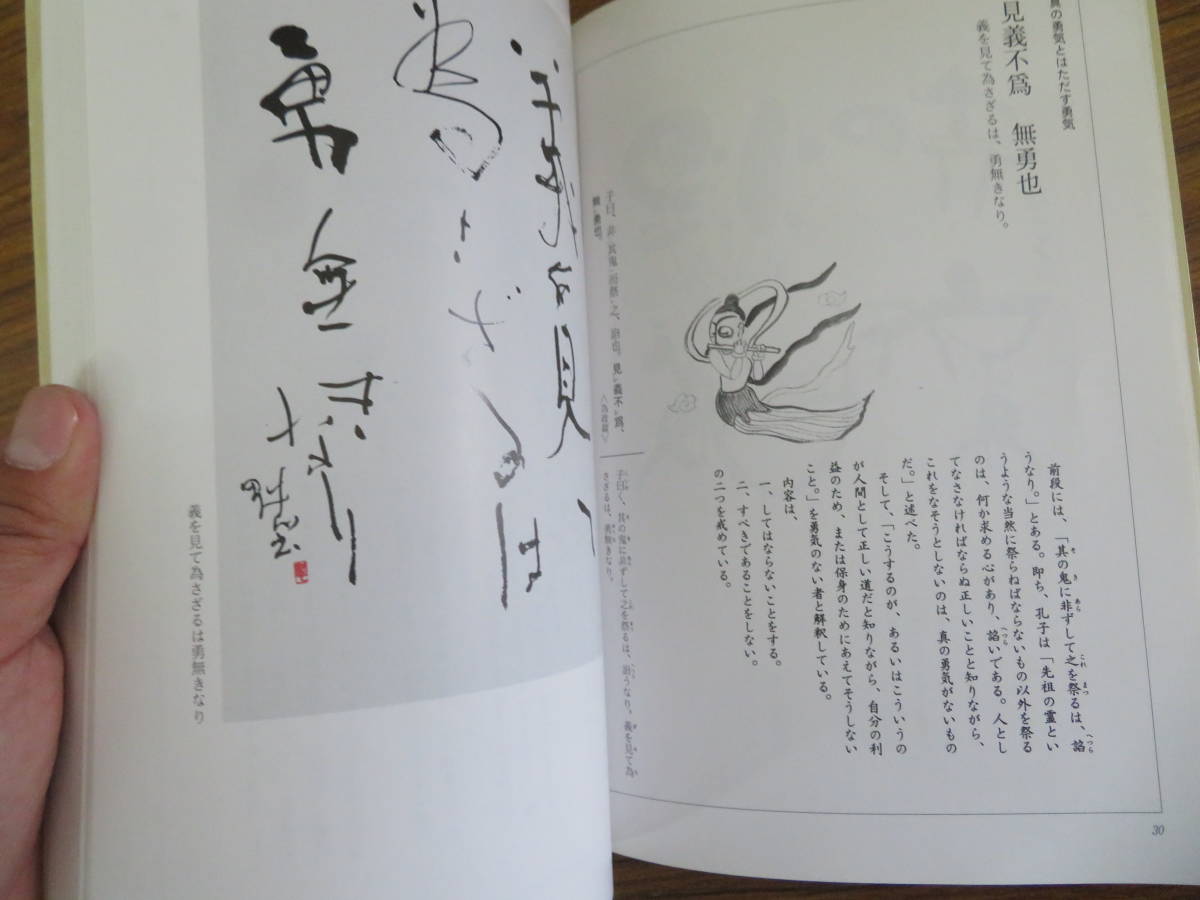 真の勇気とはただす勇気
見義不爲 無勇也
義を見て為さざるは、勇無きなり。
子曰、非其鬼而祭之、諂也。見義不爲、
無勇也。
〈為政篇〉
子曰く、其の鬼に非ずして之を祭るは、諂うなり。義を見て為
さざるは、勇無きなり。
前段には、「其の鬼に非ずして之を祭るは、諂
うなり。」とある。即ち、孔子は「先祖の霊とい
うような当然に祭らねばならないもの以外を祭る
のは、何か求める心があり、諂いである。人とし
てなさなければならぬ正しいことと知りながら、
これをなそうとしないのは、真の勇気がないもの
だ。」と述べた。
そして、「こうするのが、あるいはこういうの
が人間として正しい道だと知りながら、自分の利
益のため、または保身のためにあえてそうしない
こと。」を勇気のない者と解釈している。
内容は、
一、してはならないことをする。
二、すべきであることをしない。
の二つを戒めている。
30
義を見
為さざるは
勇無き
義を見て為さざるは勇無きなり